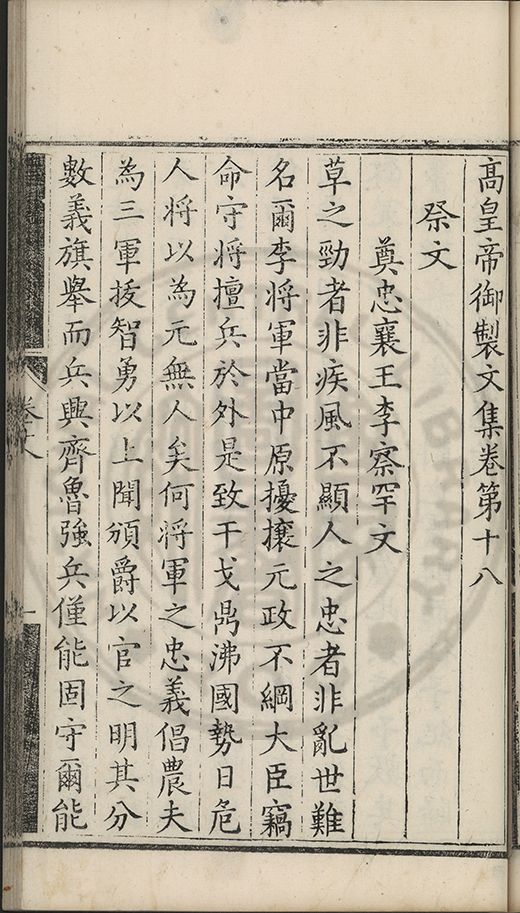 高皇帝御製文集卷第十八
祭文
奠忠襄王李察罕文
草之勁者非疾風不顯人之忠者非亂世難
名爾李將軍當中原擾攘元政不綱大臣竊
命守將擅兵於外是致干戈鼎沸國勢日危
人將以為元無人矣何將軍之忠義倡農夫
為三軍拔智勇以上聞頒爵以官之明其分
數義旗舉而兵興齊魯強兵僅能固守爾能